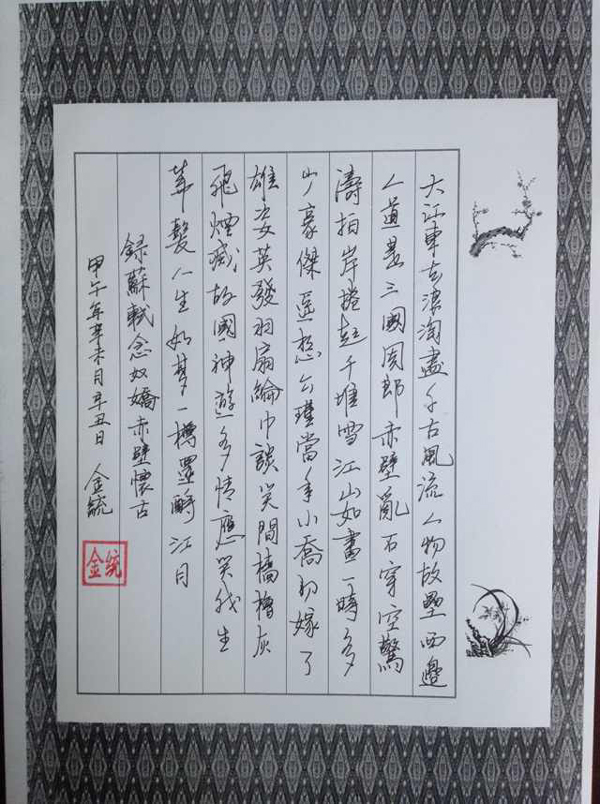 大江東去浪淘盡千古風流人物故壘西邊
人道是三國周郎赤壁亂石穿空驚
濤拍岸捲起千堆雪江山如畫一時多
少豪傑遙想公瑾當年小喬初嫁了
雄姿英發羽扇綸巾談笑間檣櫓灰
飛煙滅故國神遊多情應笑我生
華髮人生如夢一樽還酹江月
録蘇軾念奴嬌赤壁懷古
甲午年辛未月辛丑日 金統
金统